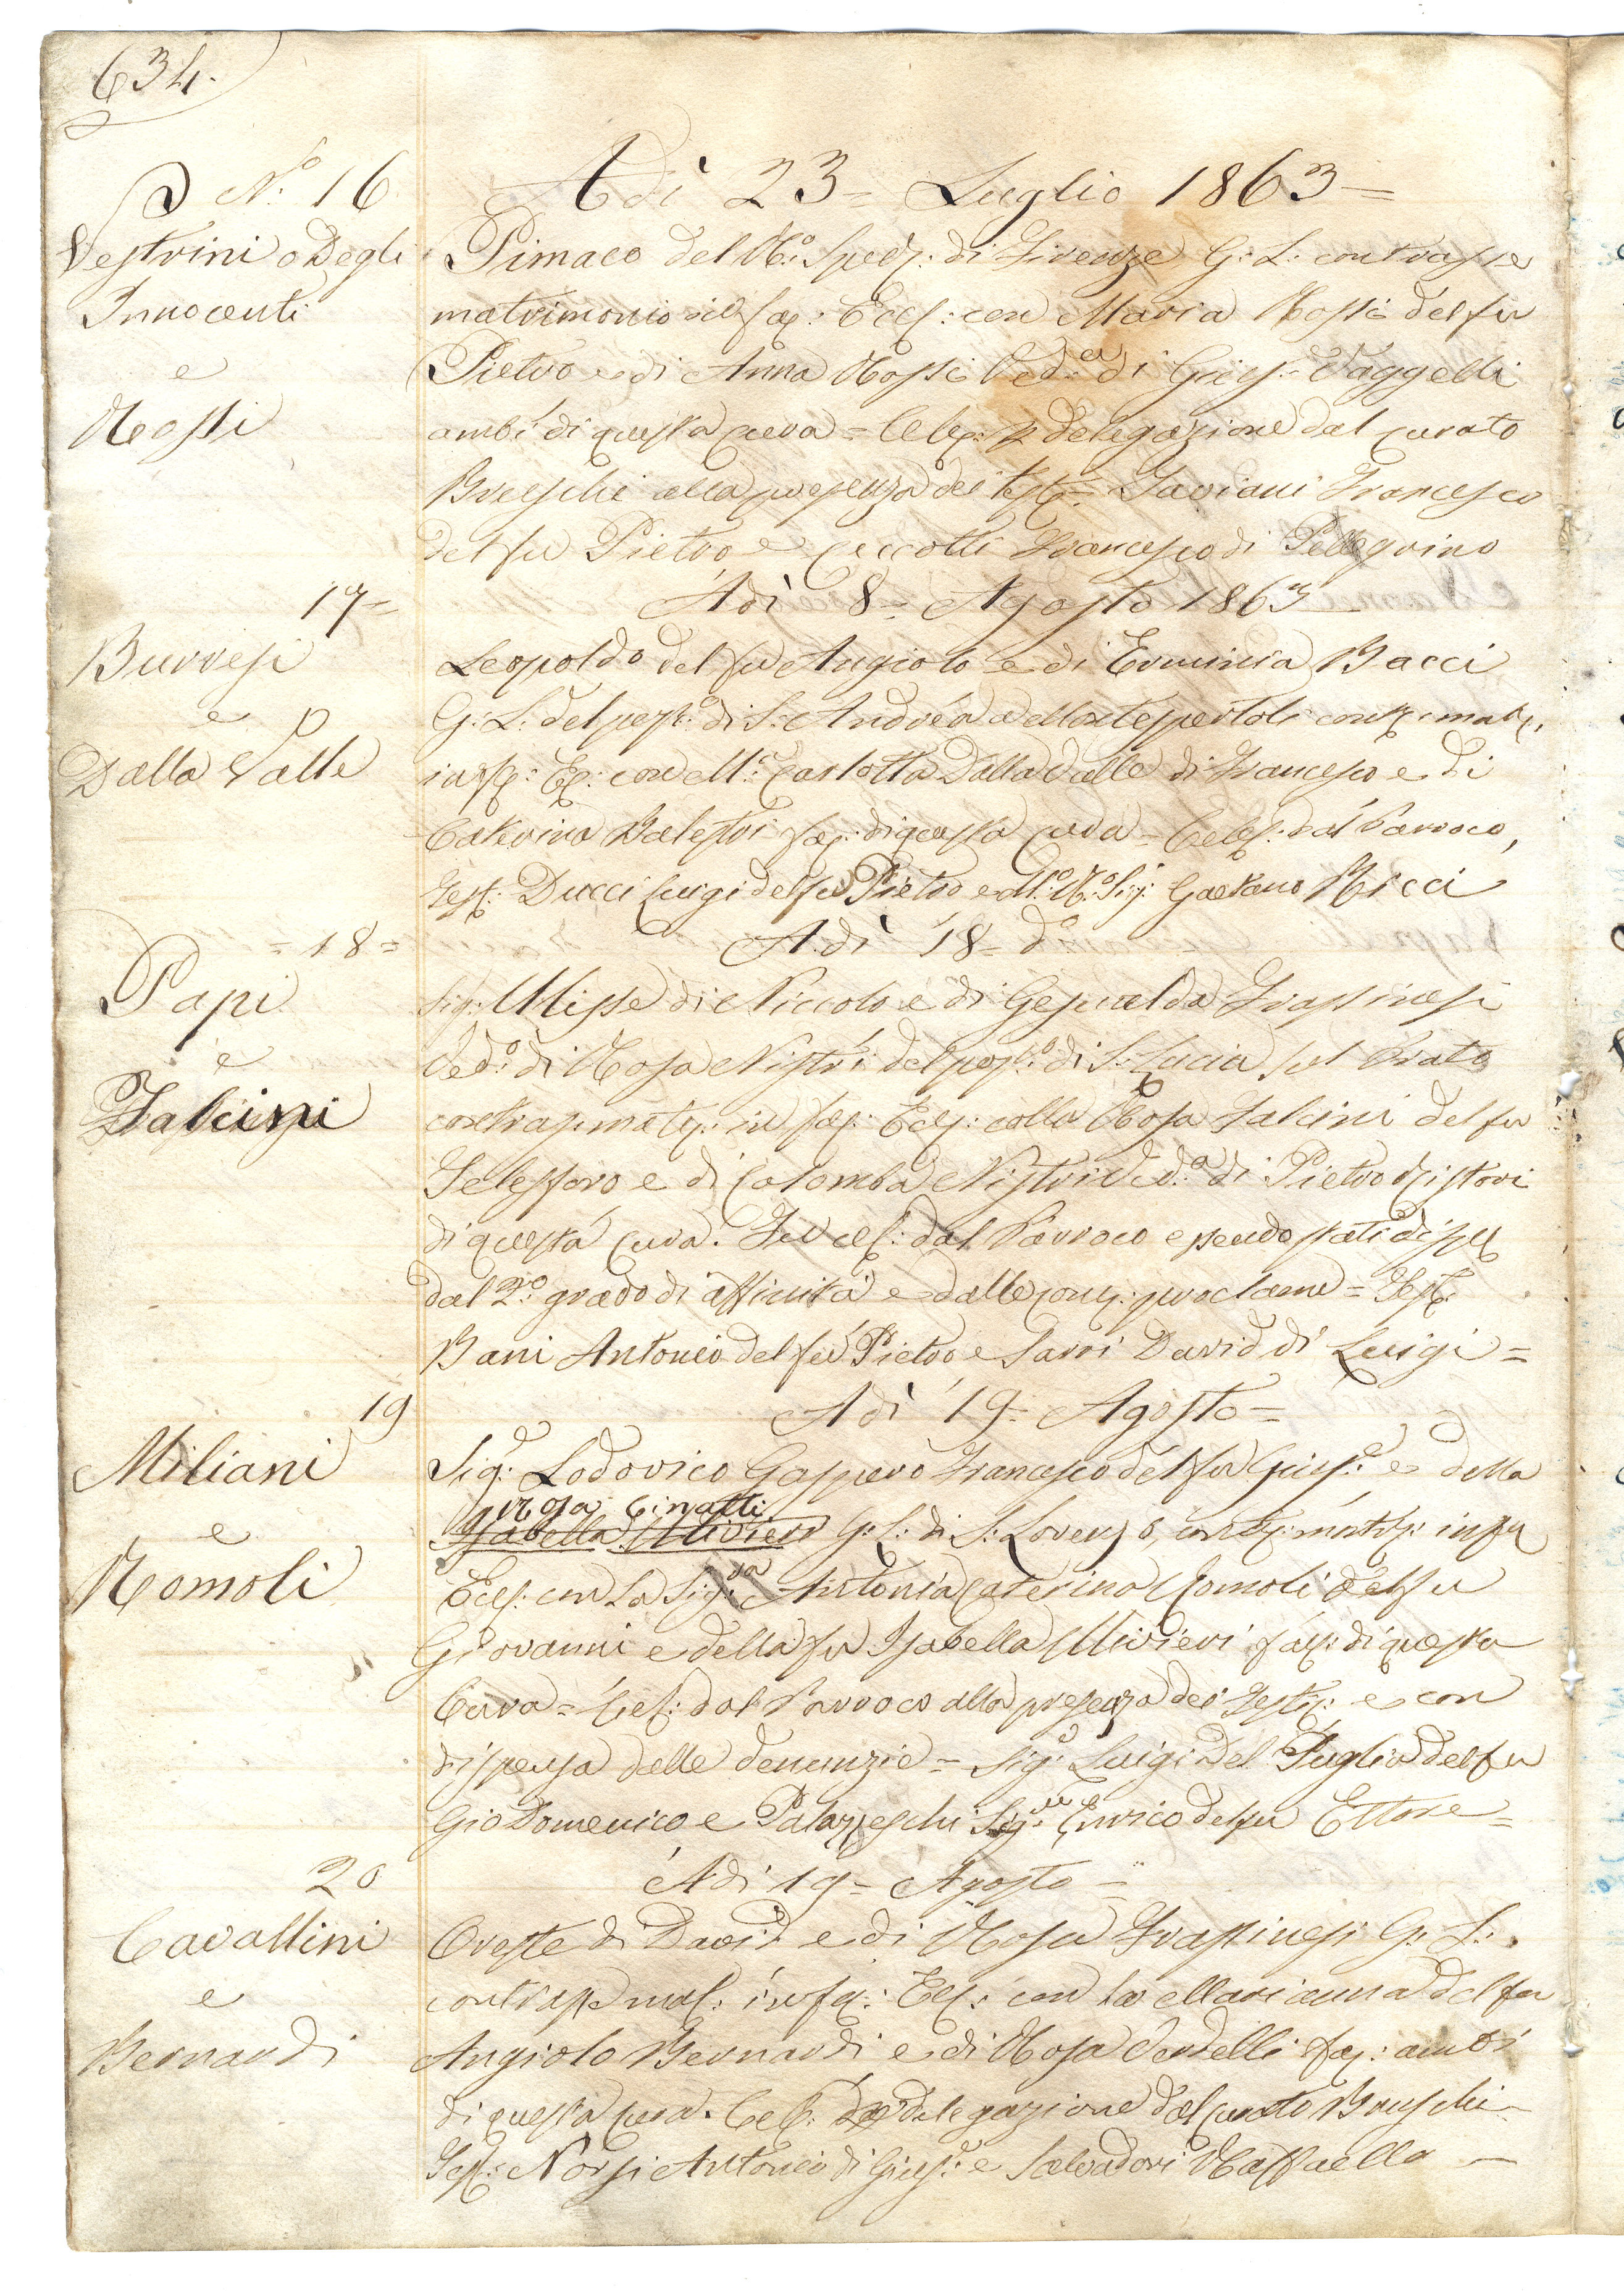 634.
No: 16
Vestrini o Degli
Innocenti
e
Rossi
Adì 23= Luglio 1863=
Pimaco del R.o Sped: di Firenze G: L: contrasse
matrimonio in fac: Eccl: con Maria Rossi del fu
Pietro e di Anna Rossi Ved.a di Gius: Vaggelli
ambi di questa cura = Celeb: p delegazione dal curato
Brueschi alla presenza dei test: Taviani Francesco
del fu Pietro e Ceccotti Francesco di Pellegrino
17=
Burresi
e
Dalla Valle
Adì 8= Agosto 1863
Leopoldo del fu Angiolo e di Erminia Bacci
G: L: del pop.o di S: Andrea a Montespertoli contr: matr:
in fac: Ec: con M.a Carlotta Dalla Valle di Francesco e di
Caterina Balestri fac: di questa cura = Celeb: dal Parroco,
Test: Ducci Luigi del fu Pietro e M.o R.o Sig: Gaetano Ricci
= 18 =
Papi
e
Falcini
A dì 18= d.o
Sig: Ulisse di Niccolo e di Gesualda Frassinesi
Ved.o di Rosa Nistri del pop.o di S: Lucia sul Prato
contras: matr: in fac: Eccl: colla Rosa Falcini del fu
Telesforo e di Colomba Nistri Ved.a di Pietro Pistori
di questa cura. Fu cel: dal Parroco essendo stati disp
dal 2.o grado di affinità e dalle cons: proclame = Test:
Bani Antonio del fu Pietro e Sarri David di Luigi =
19
Miliani
e
Romoli
Adì 19= Agosto =
Sig: Lodovico Gaspero Francesco del fu Gius.e e della
Rosa Cinatti
Isabella Ulivieri G: L: di S: Lorenzo, contr: matr: in fac
Eccl: con La Sig:ra Antonia Caterina Romoli del fu
Giovanni e della fu Isabella Ulivieri fac: di questa
Cura = Cel: dal Parroco alla presenza dei Testi: e con
dispensa dalle denunzie = Sig: Luigi Del Puglia del fu
Gio Domenico e Palazzeschi Sig:re Enrico del fu Ettore =
20
Cavallini
e
Bernardi
Adì 19= Agosto =
Oreste di David e di Rosa Frassinesi G: L:
contrasse mat: in fac: Ecl: con la Marianna del fu
Angiolo Bernardi e di Rosa Vendelli fac: ambi
di questa cura. Celeb: delegazione dal curato Brueschi
Test: Norsi Antonio di Gius.e e Salvadori Raffaello